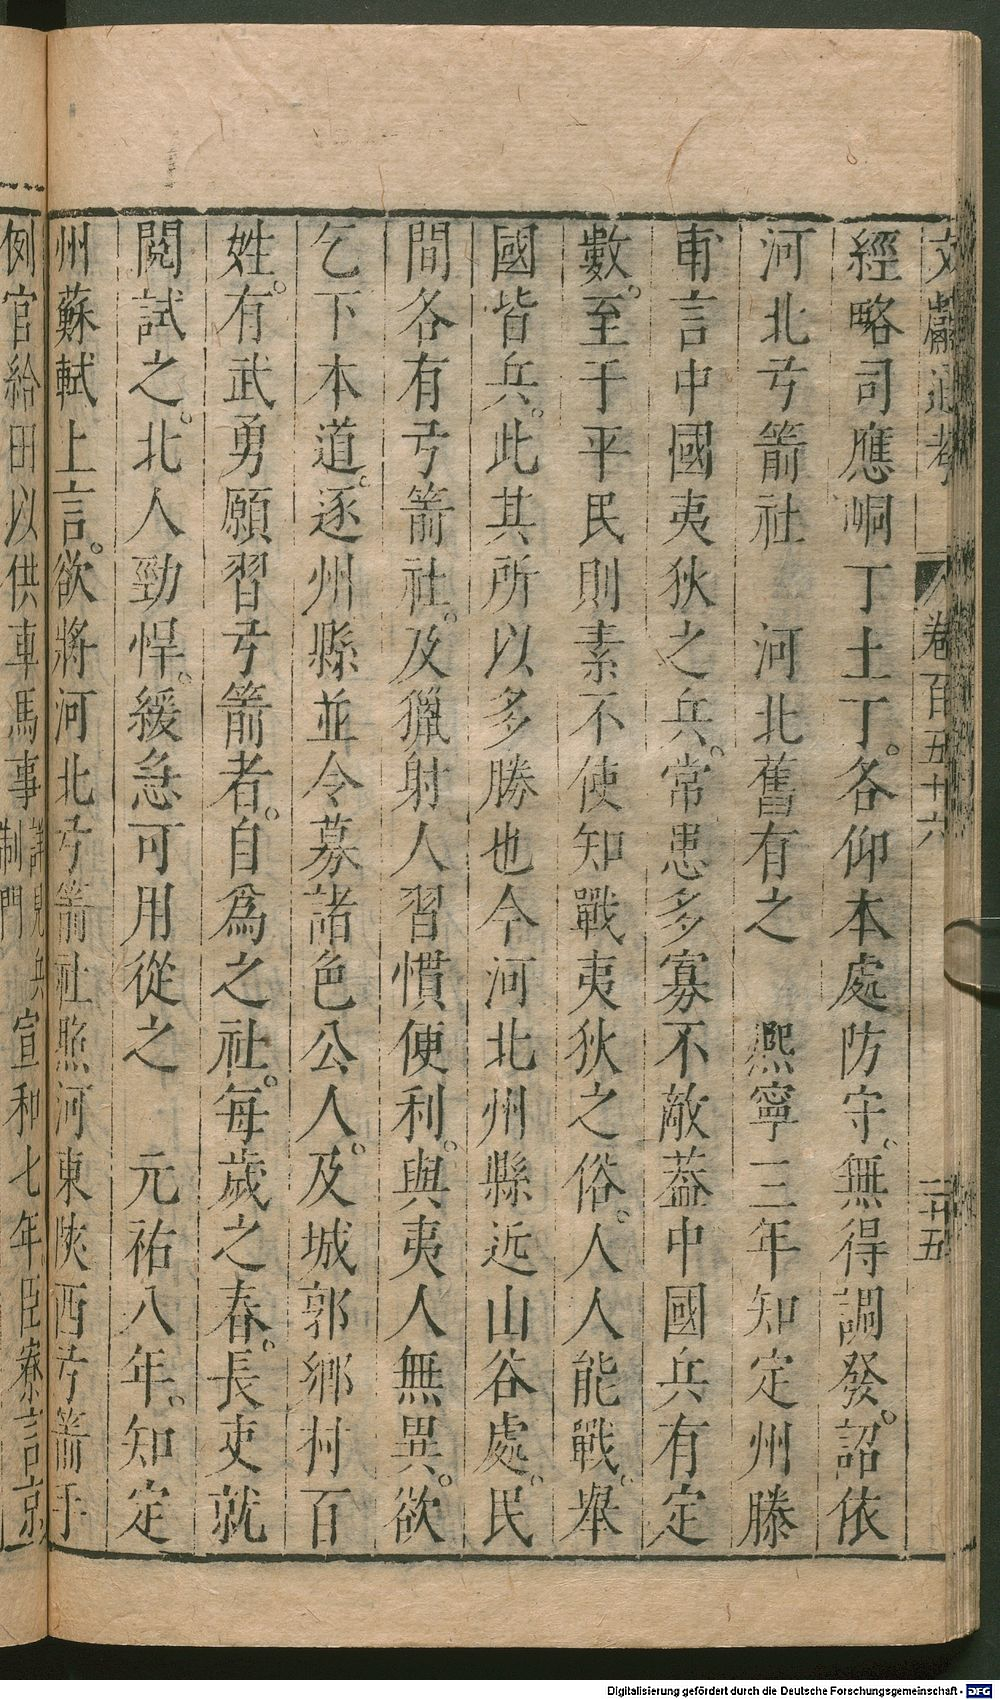 文獻通考 卷百五十六 二十五
經略司應峒丁土丁各仰本處防守無得調發詔依
河北弓箭社 河北舊有之 熙寧三年知定州滕
甫言中國夷狄之兵常患多寡不敵蓋中國兵有定
數至于平民則素不使知戰夷狄之俗人人能戰舉
國皆兵此其所以多勝也今河北州縣近山谷處民
間各有弓箭社及獵射人習慣便利與夷人無異欲
乞下本道逐州縣並令募諸色公人及城郭鄉村百
姓有武勇願習弓箭者自爲之社每歲之春長吏就
閱試之北人勁悍緩急可用從之 元祐八年知定
州蘇軾上言欲將河北弓箭社照河東陝西弓箭手
例官給田以供車馬事詳見兵制門宣和七年臣寮言京
Digitalisierung gefördert durch die Deutsche Forschungsgemeinschaft - DFG